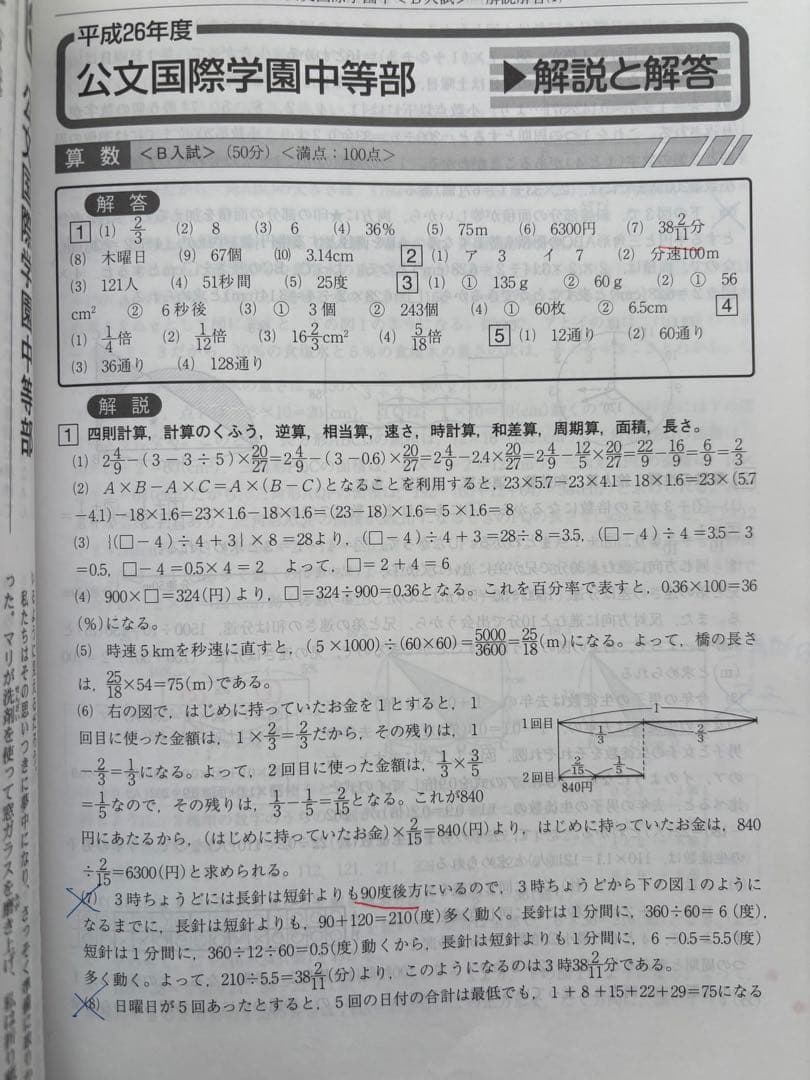 平成26年度
公文国際学園中等部
▶解説と解答
算数 <B入試>(50分)<満点:100点>
解答
1 (1) 2/3 (2) 8 (3) 6 (4) 36% (5) 75m (6) 6300円 (7) 38 2/11分
(8) 木曜日 (9) 67個 (10) 3.14cm 2 (1) ア 3 イ 7 (2) 分速100m
(3) 121人 (4) 51秒間 (5) 25度 3 (1) ① 135g ② 60g (2) ① 56
cm² ② 6秒後 (3) ① 3個 ② 243個 (4) ① 60枚 ② 6.5cm 4
(1) 1/4倍 (2) 1/12倍 (3) 16 2/3cm² (4) 5/18倍 5 (1) 12通り (2) 60通り
(3) 36通り (4) 128通り
解説
1 四則計算,計算のくふう,逆算,相当算,速さ,時計算,和差算,周期算,面積,長さ。
(1) 2 4/9-(3-3÷5)×20/27=2 4/9-(3-0.6)×20/27=2 4/9-2.4×20/27=2 4/9-12/5×20/27=22/9-16/9=6/9=2/3
(2) A×B-A×C=A×(B-C)となることを利用すると,23×5.7-23×4.1-18×1.6=23×(5.7
-4.1)-18×1.6=23×1.6-18×1.6=(23-18)×1.6=5×1.6=8
(3) {(□-4)÷4+3}×8=28より,(□-4)÷4+3=28÷8=3.5,(□-4)÷4=3.5-3
=0.5,□-4=0.5×4=2 よって,□=2+4=6
(4) 900×□=324(円)より,□=324÷900=0.36となる。これを百分率で表すと,0.36×100=36
(%)になる。
(5) 時速5kmを秒速に直すと,(5×1000)÷(60×60)=5000/3600=25/18(m)になる。よって,橋の長さ
は,25/18×54=75(m)である。
(6) 右の図で,はじめに持っていたお金を1とすると,1
回目に使った金額は,1×2/3=2/3だから,その残りは,1
-2/3=1/3になる。よって,2回目に使った金額は,1/3×3/5
=1/5なので,その残りは,1/3-1/5=2/15となる。これが840
円にあたるから,(はじめに持っていたお金)×2/15=840(円)より,はじめに持っていたお金は,840
÷2/15=6300(円)と求められる。
1
1回目 1/3 2/3
2/15 1/5
2回目
840円
(7) 3時ちょうどには長針は短針よりも90度後方にいるので,3時ちょうどから下の図1のように
なるまでに,長針は短針よりも,90+120=210(度)多く動く。長針は1分間に,360÷60=6(度),
短針は1分間に,360÷12÷60=0.5(度)動くから,長針は短針よりも1分間に,6-0.5=5.5(度)
多く動く。よって,210÷5.5=38 2/11(分)より,このようになるのは3時38 2/11分である。
(8) 日曜日が5回あったとすると,5回の日付の合計は最低でも,1+8+15+22+29=75になる